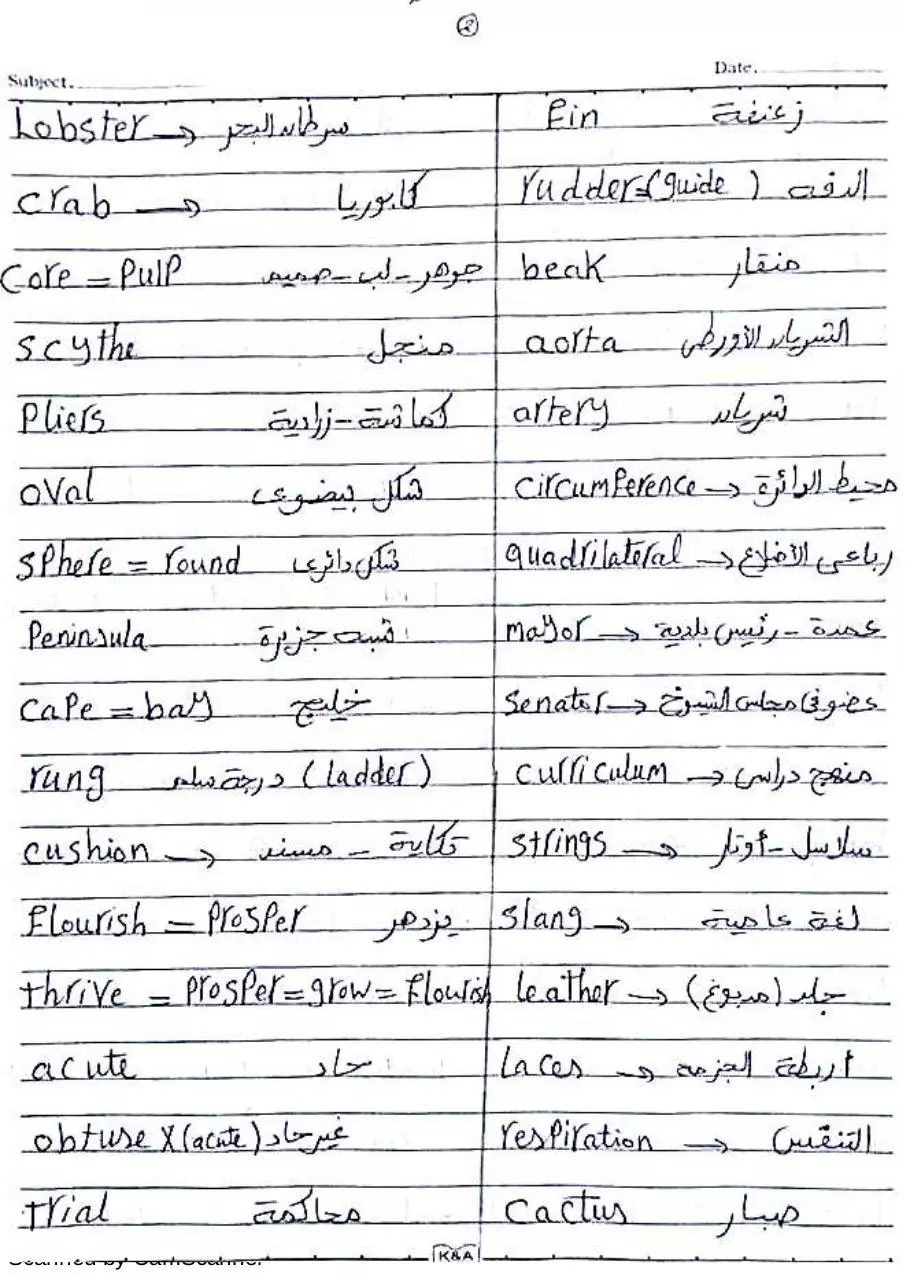 2
Subject.
Date.
Lobster → سرطان البحر
crab → كابوريا
Core = Pulp جوهر - لب - صميم
scythe منجل
Pliers كماشة - زرادية
oval شكل بيضوى
sphere = round شكل دائرى
Peninsula شبه جزيرة
cape = bay خليج
rung درجة سلم (ladder)
cushion → تكاية - مسند
flourish = prosper يزدهر
thrive = prosper = grow = flourish
acute حاد
obtuse X (acute) غير حاد
trial محاكمة
Fin زعنفة
rudder = (guide) الدفه
beak منقار
aorta الشريان الأورطى
artery شريان
circumference → محيط الدائرة
quadrilateral → رباعى الأضلاع
mayor → عمدة - رئيس بلدية
senator → عضو فى مجلس الشيوخ
curriculum → منهج دراسى
strings → سلاسل - أوتار
slang → لغة عامية
leather → جلد (مدبوغ)
laces → أربطة الجزمه
respiration → التنفس
cactus صبار
K&A
Scanned by CamScanner